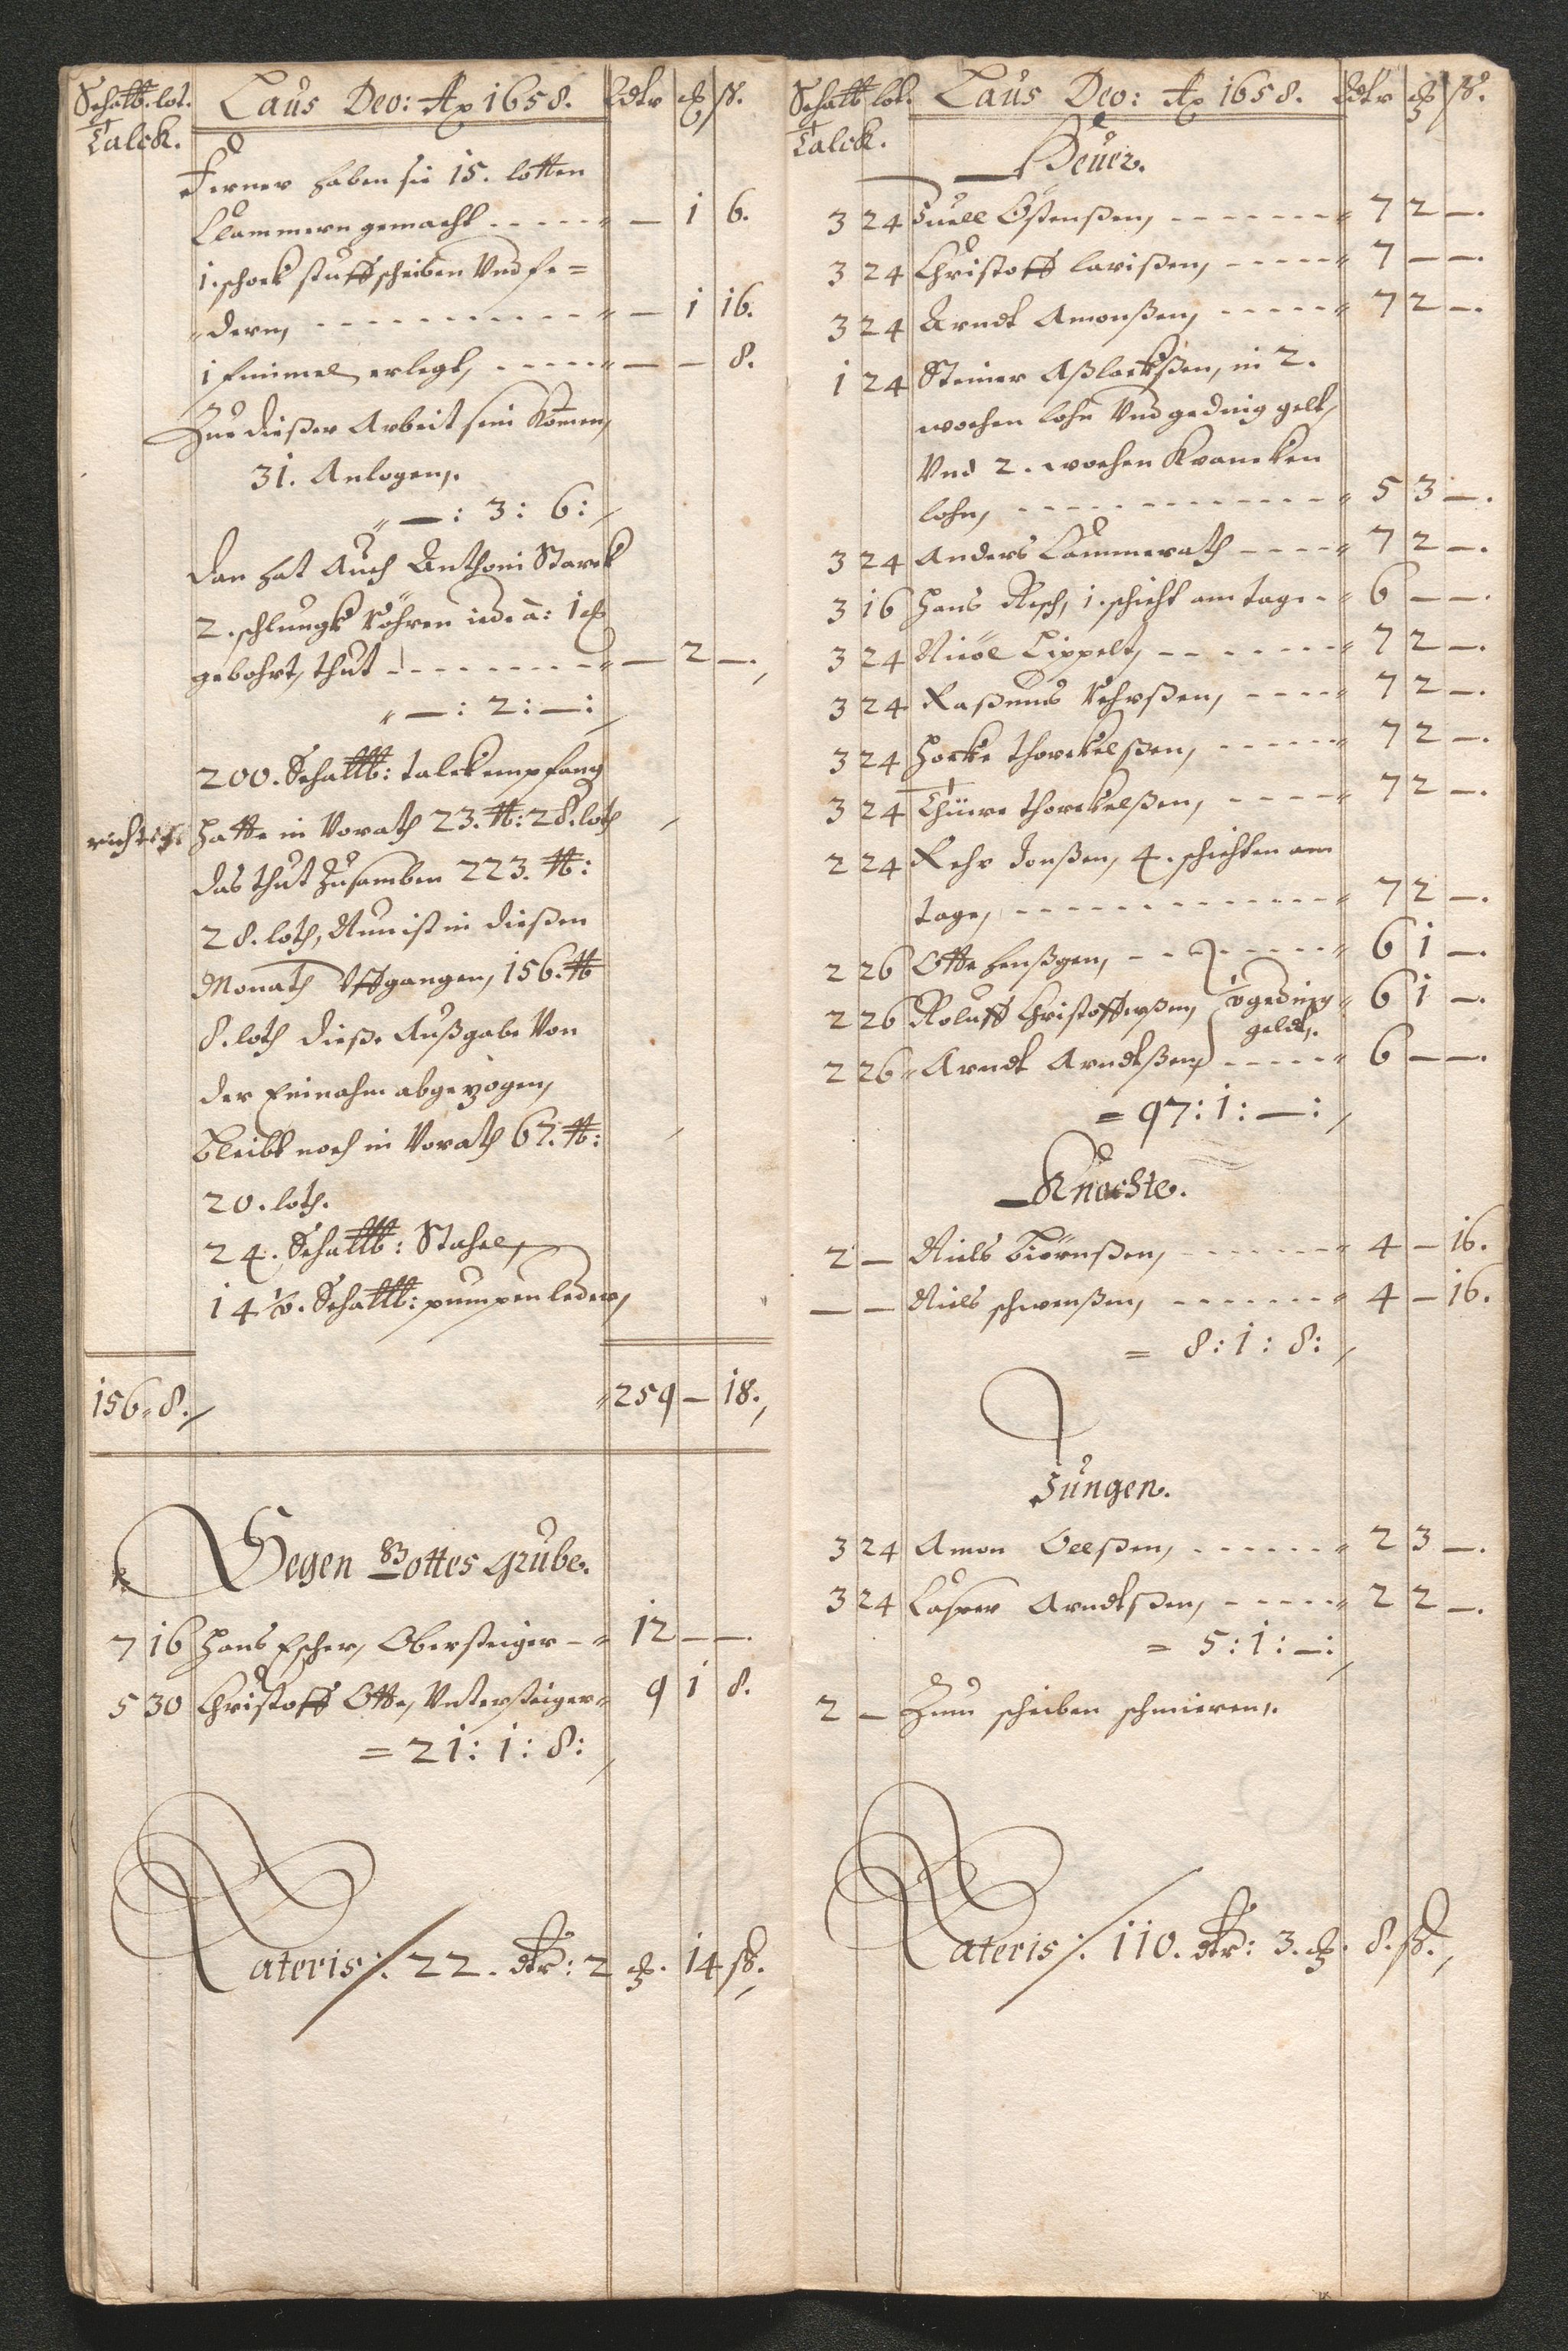 Schalt. lot. Laus Deo: Ao 1658. Rdtr ₰ ß.
Talck.
Ferner haben sie 15. lotten
Clammern gemacht - - - - - " — 1 6.
1. schock stuff scheiben Vnd fe=
"dern, - - - - - - - - - - " — 1 16.
1 Emimel erlegt, - - - - " — — 8.
Zue dießer Arbeit sein Komen,
31. Anlogen,.
" —: 3: 6:
Dan hat Auch Anthoni Starck
2. schlungk Röhren iede â: 1
gebohrt, thut - - - - - - - " — 2 —.
" —: 2: —:
200. Schalt: talck empfang
richtig hatte in Vorath 23. ℔: 28. loth
das thut Zusamben 223. ℔:
28. loth, Nun ist in dießen
Monath Vffgangen, 156. ℔
8. loth dieße Außgabe Von
der Einahm abgezogen,
bleibt noch in Vorath 67. ℔:
20. loth.
24. Schalt: Stahel,
14 ½. Schalt: pumpen leder,
156 " 8. " 259 — 18.
Segen Gottes Grube.
7 16 Hans Escher, Obersteiger - " 12 — —.
5 30 Christoff Otte, Vntersteiger " 9 1 8.
= 21: 1: 8:
Lateris /. 22. dtr: 2 ₰. 14 ß.
Schalt lot. Laus Deo: Ao 1658. Rdtr ₰ ß.
Talck.
Heuer.
3 24 Juell Östenßen, - - - - - - - " 7 2 —.
3 24 Christoff larißen, - - - - - " 7 — —.
3 24 Arndt Amonßen, - - - - - " 7 2 —.
1 24 Steiner Aßlackßen, in 2.
wochen lohn Vnd geding gelt,
Vnd 2. wochen Krancken
lohn, - - - - - - - - - - - - " 5 3 —.
3 24 Anders Cammerath - - - - " 7 2 —.
3 16 Hans Resch, 1. schicht am tage - " 6 — —.
3 24 Nicol Lippelt, - - - - - - - " 7 2 —.
3 24 Raßmus Rehrßen, - - - - " 7 2 —.
3 24 Horke thorckelßen, - - - - - " 7 2 —.
3 24 Thüre thorckelßen, - - - - " 7 2 —.
2 24 Rehr Jonßen, 4. schichten am
tage, - - - - - - - - - - - - " 7 2 —.
2 26 Otte Henßgen, - - - - - - " 6 1 —.
2 26 Roluff Christofferßen, geding " 6 1 —.
geldt,.
2 26 " Arndt Arndtßen, - - - - - " 6 — —.
= 97: 1: —:
Knechte.
2 — Niels biörnßen, - - - - - - " 4 — 16.
— — Niels schwenßen, - - - - - - - " 4 — 16.
= 8: 1: 8:
Jungen.
3 24 Amon Oelßen, - - - - - - " 2 3 —.
3 24 Casper Arndtßen, - - - - - " 2 2 —.
= 5: 1: —:
2 — Zum scheiben schmieren,.
Lateris /. 110. dtr: 3. ₰. 8. ß.